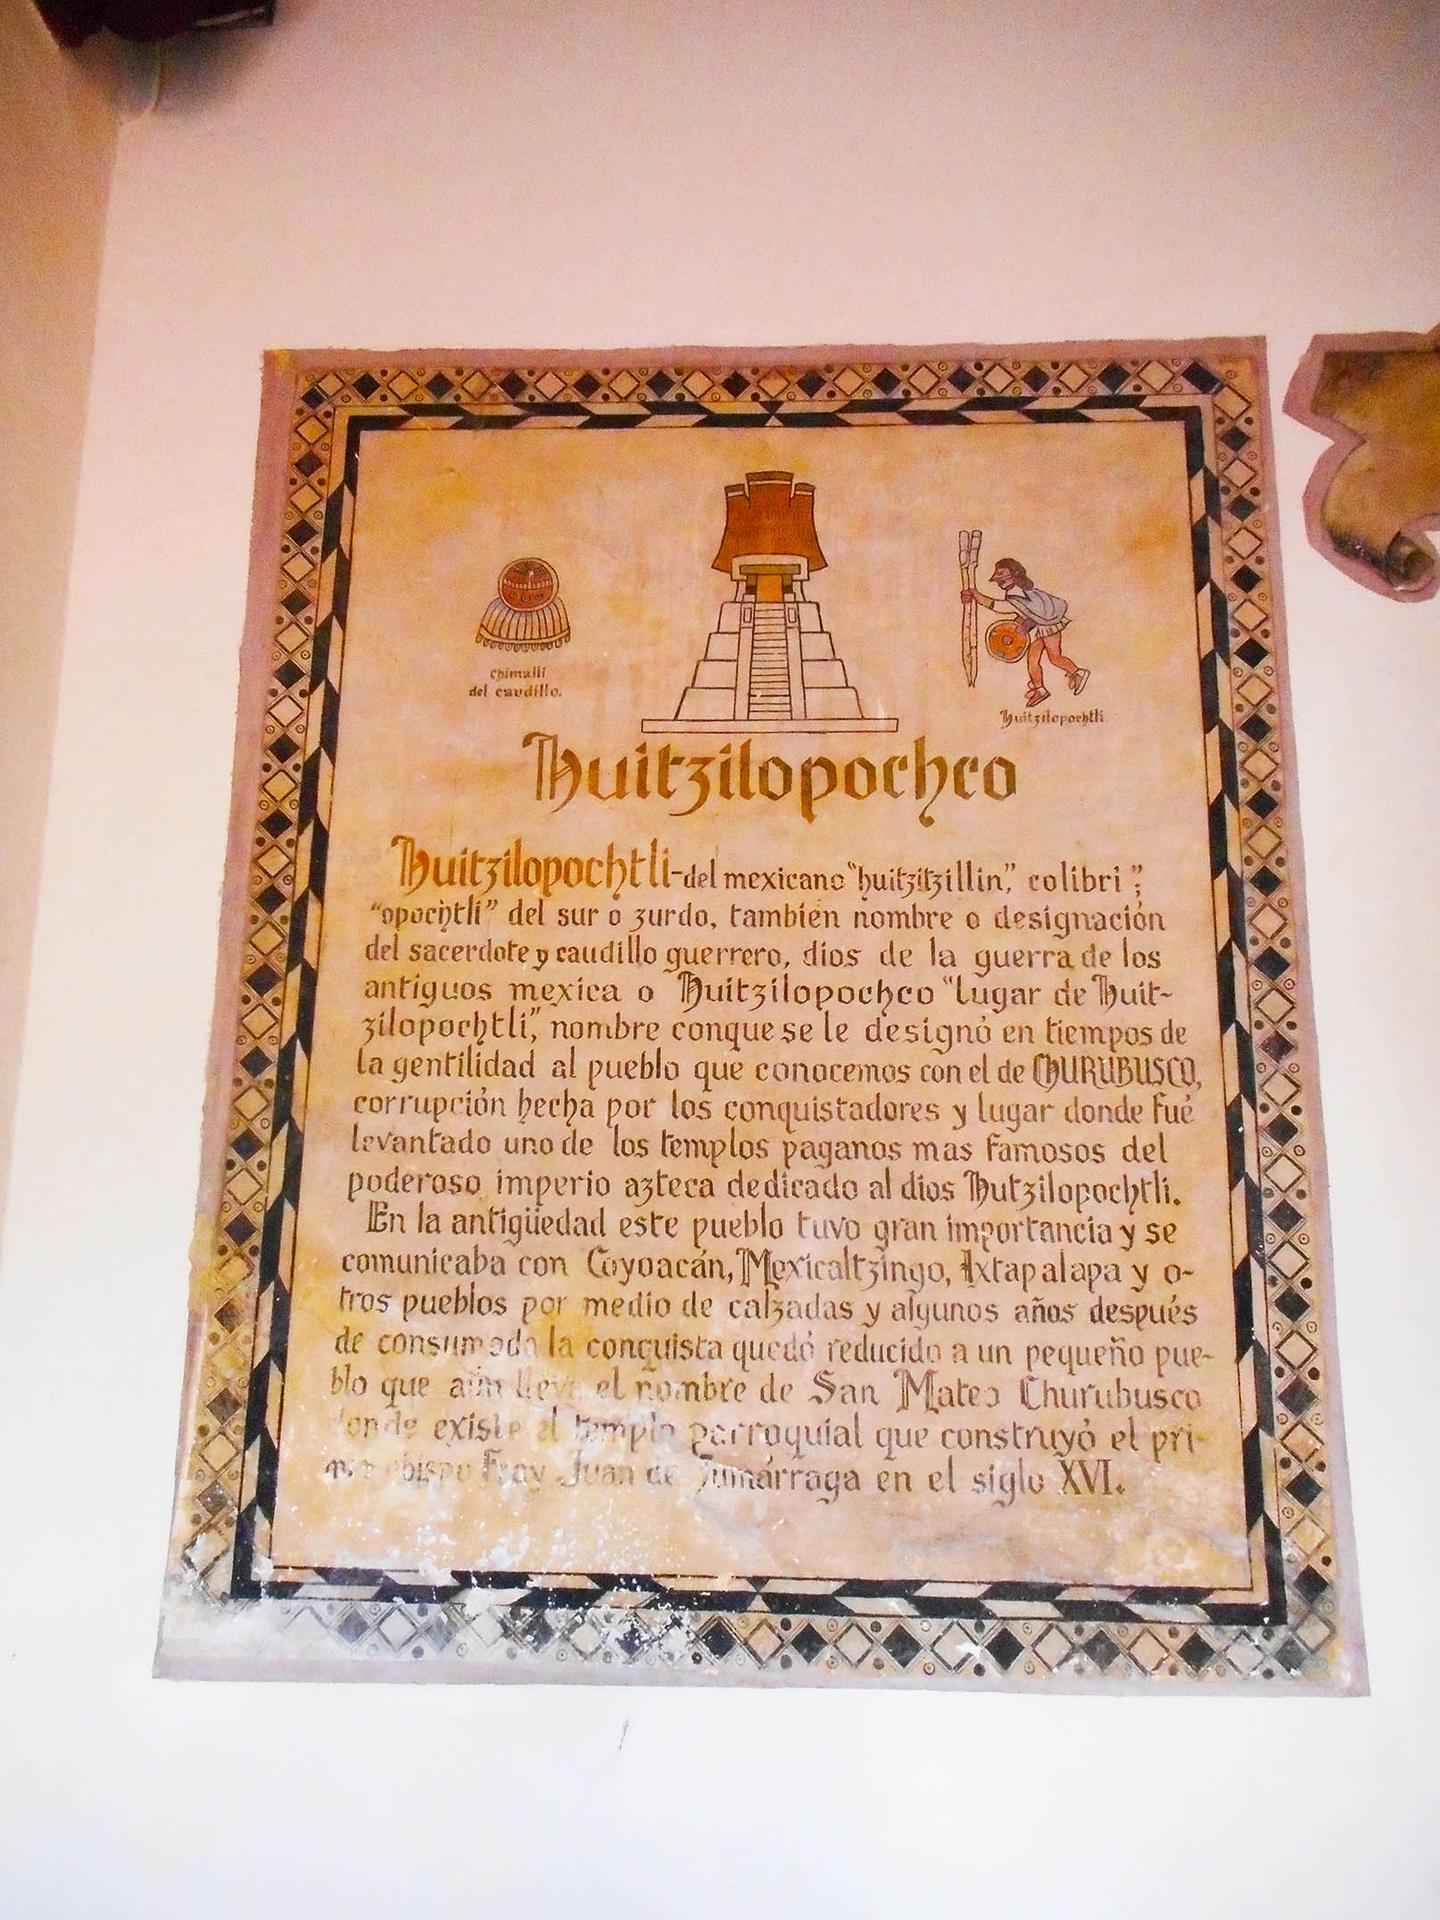 Chimalli
del caudillo.
Huitzilopochtli
Huitzilopochco
Huitzilopochtli-del mexicano "huitzitzillin", colibri";
"opochtli" del sur o zurdo, también nombre o designación
del sacerdote y caudillo guerrero, dios de la guerra de los
antiguos mexica o Huitzilopochco "lugar de Huit-
zilopochtli", nombre conque se le designó en tiempos de
la gentilidad al pueblo que conocemos con el de CHURUBUSCO,
corrupción hecha por los conquistadores y lugar donde fué
levantado uno de los templos paganos mas famosos del
poderoso imperio azteca dedicado al dios Hutzilopochtli.
En la antigüedad este pueblo tuvo gran importancia y se
comunicaba con Coyoacán, Mexicaltzingo, Ixtapalapa y o-
tros pueblos por medio de calzadas y algunos años después
de consumada la conquista quedó reducido a un pequeño pue-
blo que aún lleva el nombre de San Mateo Churubusco
donde existe el templo parroquial que construyó el pri-
mer obispo Fray Juan de Zumárraga en el siglo XVI.